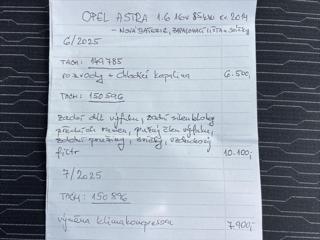 OPEL ASTRA 1.6 16V 85kW r.v. 2014
- NOVÁ BATERIE, ZAPALOVACÍ LIŠTA + SVÍČKY
6/2025
TACH: 149 785
rozvody + chladící kapalina 6.500,-
TACH: 150 596
zadní díl výfuku, zadní silentbloky
předních ramen, pružný člen výfuku,
zadní pružiny, svíčky, vzduchový
filtr 10.100,-
7/2025
TACH: 150 896
výměna klimakompresoru 7.900,-